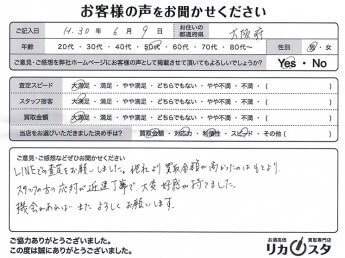 お客様の声をお聞かせください
ご記入日 H.30年 6月 9日 お住いの都道府県 大阪府
年齢 20代・30代・40代・50代・60代・70代・80代〜 性別 男・女
ご意見・ご感想を弊社ホームページにお客様の声として掲載させて頂いてもよろしいでしょうか? Yes・No
査定スピード 大満足・満足・やや満足・どちらでもない・やや不満・不満・( )
スタッフ接客 大満足・満足・やや満足・どちらでもない・やや不満・不満・( )
買取金額 大満足・満足・やや満足・どちらでもない・やや不満・不満・( )
当店をお選びいただきました決め手は? 買取金額・対応力・利便性・スピード・その他( )
ご意見・ご感想などぜひお聞かせください
LINEでの査定をお願いしました。他社より買取金額が高かったのはもとより、
スタッフの方の応対が迅速丁寧で、大変好感が持てました。
機会があればまたよろしくお願いします。
ご協力ありがとうございました。
この度は誠にありがとうございました。
お酒高価買取専門店
リカスタ